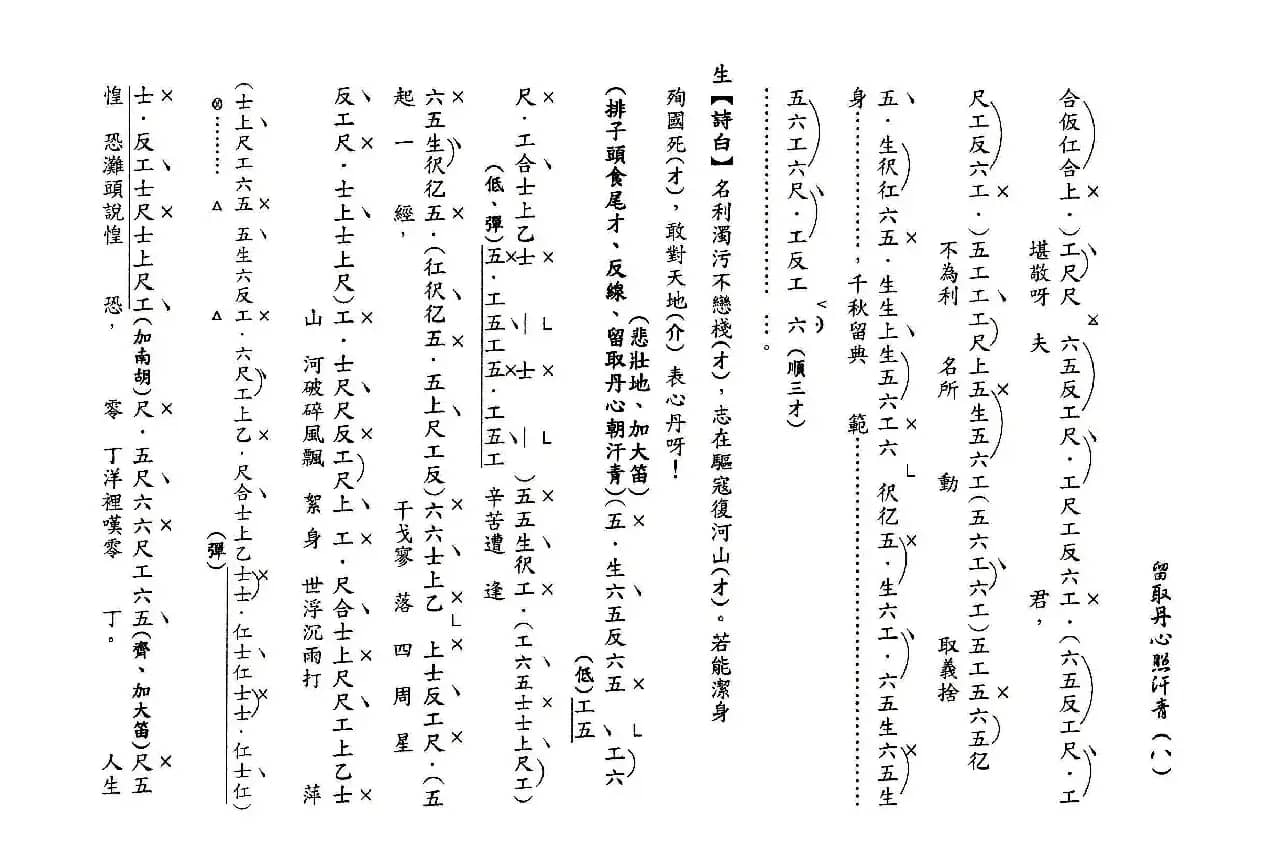 留取丹心照汗青（八）
合仮仜合上．）工尺尺 六五反工尺．工尺工反六工．（六五反工尺．工
堪敬呀 夫 君，
尺工反六工．）五工工工尺上五生五六工（五六工六工）五工五六五伬
不為利 名所 動 取義捨
五．生伬仜六五．生生上生五六工六 伬亿五．生六工．六五生六五生
身………………，千秋留典 範………………
五六工六尺．工反工 六（順三才）
………………… …。
生【詩白】名利濁污不戀棧（才），志在驅寇復河山（才）。若能潔身
殉國死（才），敢對天地（介）表心丹呀！
（悲壯地、加大笛）
（排子頭食尾才、反線、留取丹心朝汗青）（五．生六五反六五 工六
（低）工五
尺．工合士上乙士 士 ）五五生伬工．（工六五士士上尺工）
（低、彈）五．工五工五．工五工 辛苦遭 逢
六五生伬亿五．（仜伬亿五．五上尺工反）六六士上乙 上士反工尺．（五
起一 經， 干戈寥 落 四周星
反工尺．士上士上尺）工．士尺尺反工尺上工．尺合士上尺尺工上乙士
山 河破碎風飄 絮身 世浮沉雨打 萍
（士上尺工六五 五生六反工．六尺工上乙．尺合士上乙士士．仜士仜士士．仜士仜）
（彈）
士．反工士尺士上尺工（加南胡）尺．五尺六六尺工六五（齊、加大笛）尺五
惶 恐灘頭說惶 恐， 零 丁洋裡嘆零 丁。 人生